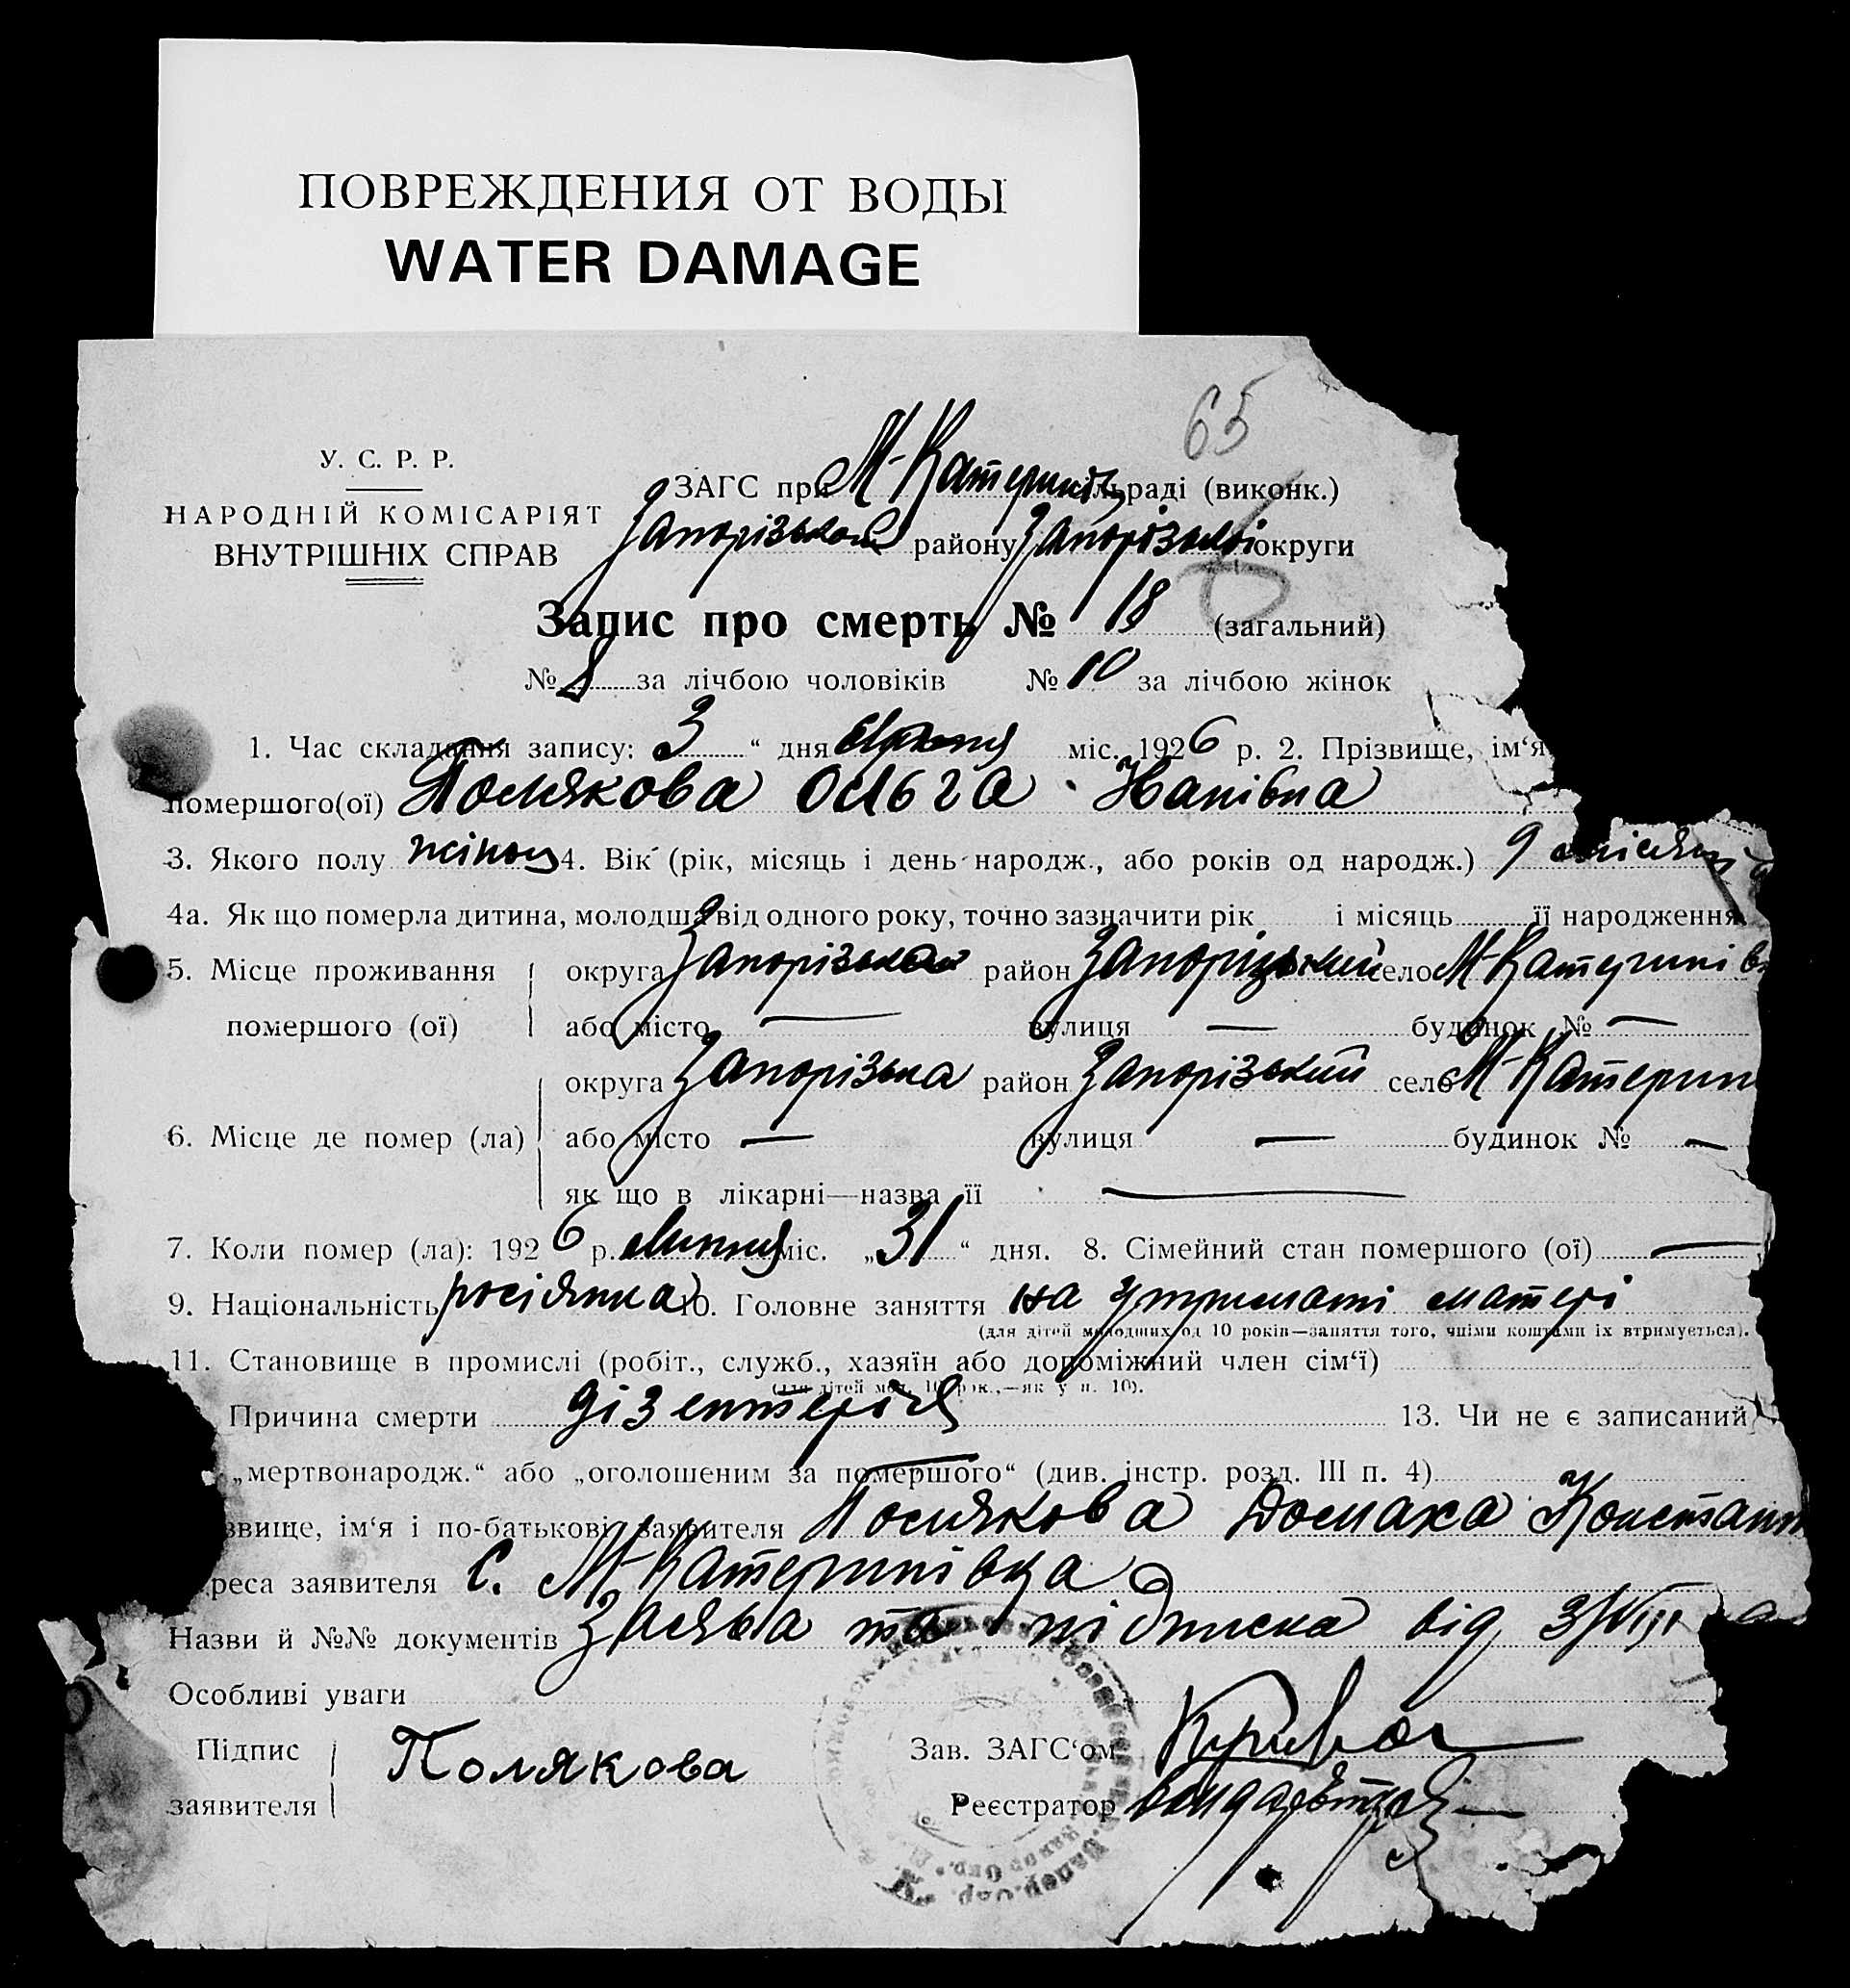 ПОВРЕЖДЕНИЯ ОТ ВОДЫ
WATER DAMAGE
65
У. С. Р. Р.
НАРОДНІЙ КОМІСАРІЯТ
ВНУТРІШНІХ СПРАВ
ЗАГС при М-Катеринів сільраді (виконк.)
Запорізького району Запорізької округи
Запис про смерть № 18 (загальний)
№ 8 за лічбою чоловіків № 10 за лічбою жінок
1. Час складання запису: 3 “ дня Серпня міс. 1926 р. 2. Прізвище, ім‘я
помершого(ої) Полякова Ольга
3. Якого полу жіноч 4. Вік (рік, місяць і день народж., або років од народж.) 9 місяців
4а. Як що померла дитина, молодша від одного року, точно зазначити рік і місяць її народження
5. Місце проживання округа Запорізька район Запоріжський село М-Катеринівк
помершого (ої) або місто — вулиця — будинок № —
округа Запорізька район Запорізький село М-Катерин
6. Місце де помер (ла) або місто — вулиця — будинок № —
як що в лікарні—назва її —
7. Коли помер (ла): 1926 р. Липня міс. „31“ дня. 8. Сімейний стан помершого (ої) —
9. Національність росіянка 10. Головне заняття на утриманні матері
(для дітей молодших од 10 років—заняття того, чиїми коштами їх втримується).
11. Становище в промислі (робіт., служб., хазяїн або допоміжний член сім‘ї)
(для дітей мол. 10 рок.,—як у п. 10).
Причина смерти дізентерія 13. Чи не є записаний
„мертвонародж.“ або „оголошеним за помершого“ (див. інстр. розд. III п. 4)
звище, ім‘я і по-батькові заявителя Полякова Домаха Констант
реса заявителя с. М-Катеринівка
Назви й №№ документів Заява та підписка від 3/VIII
Особливі уваги
Підпис Полякова Зав. ЗАГС‘ом
заявителя Реєстратор